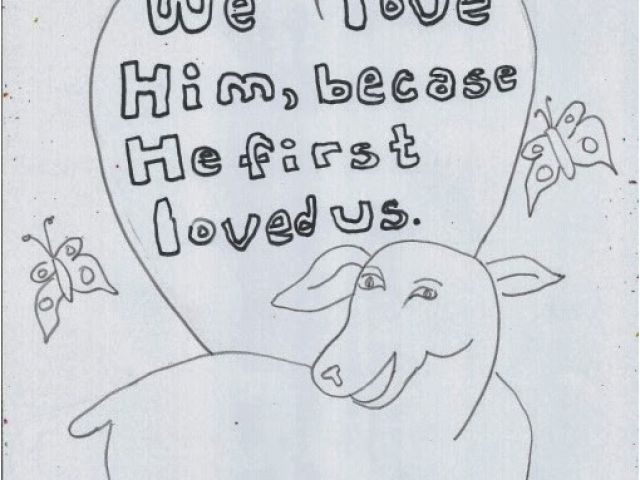 We love
Him, becase
He first
loved us.